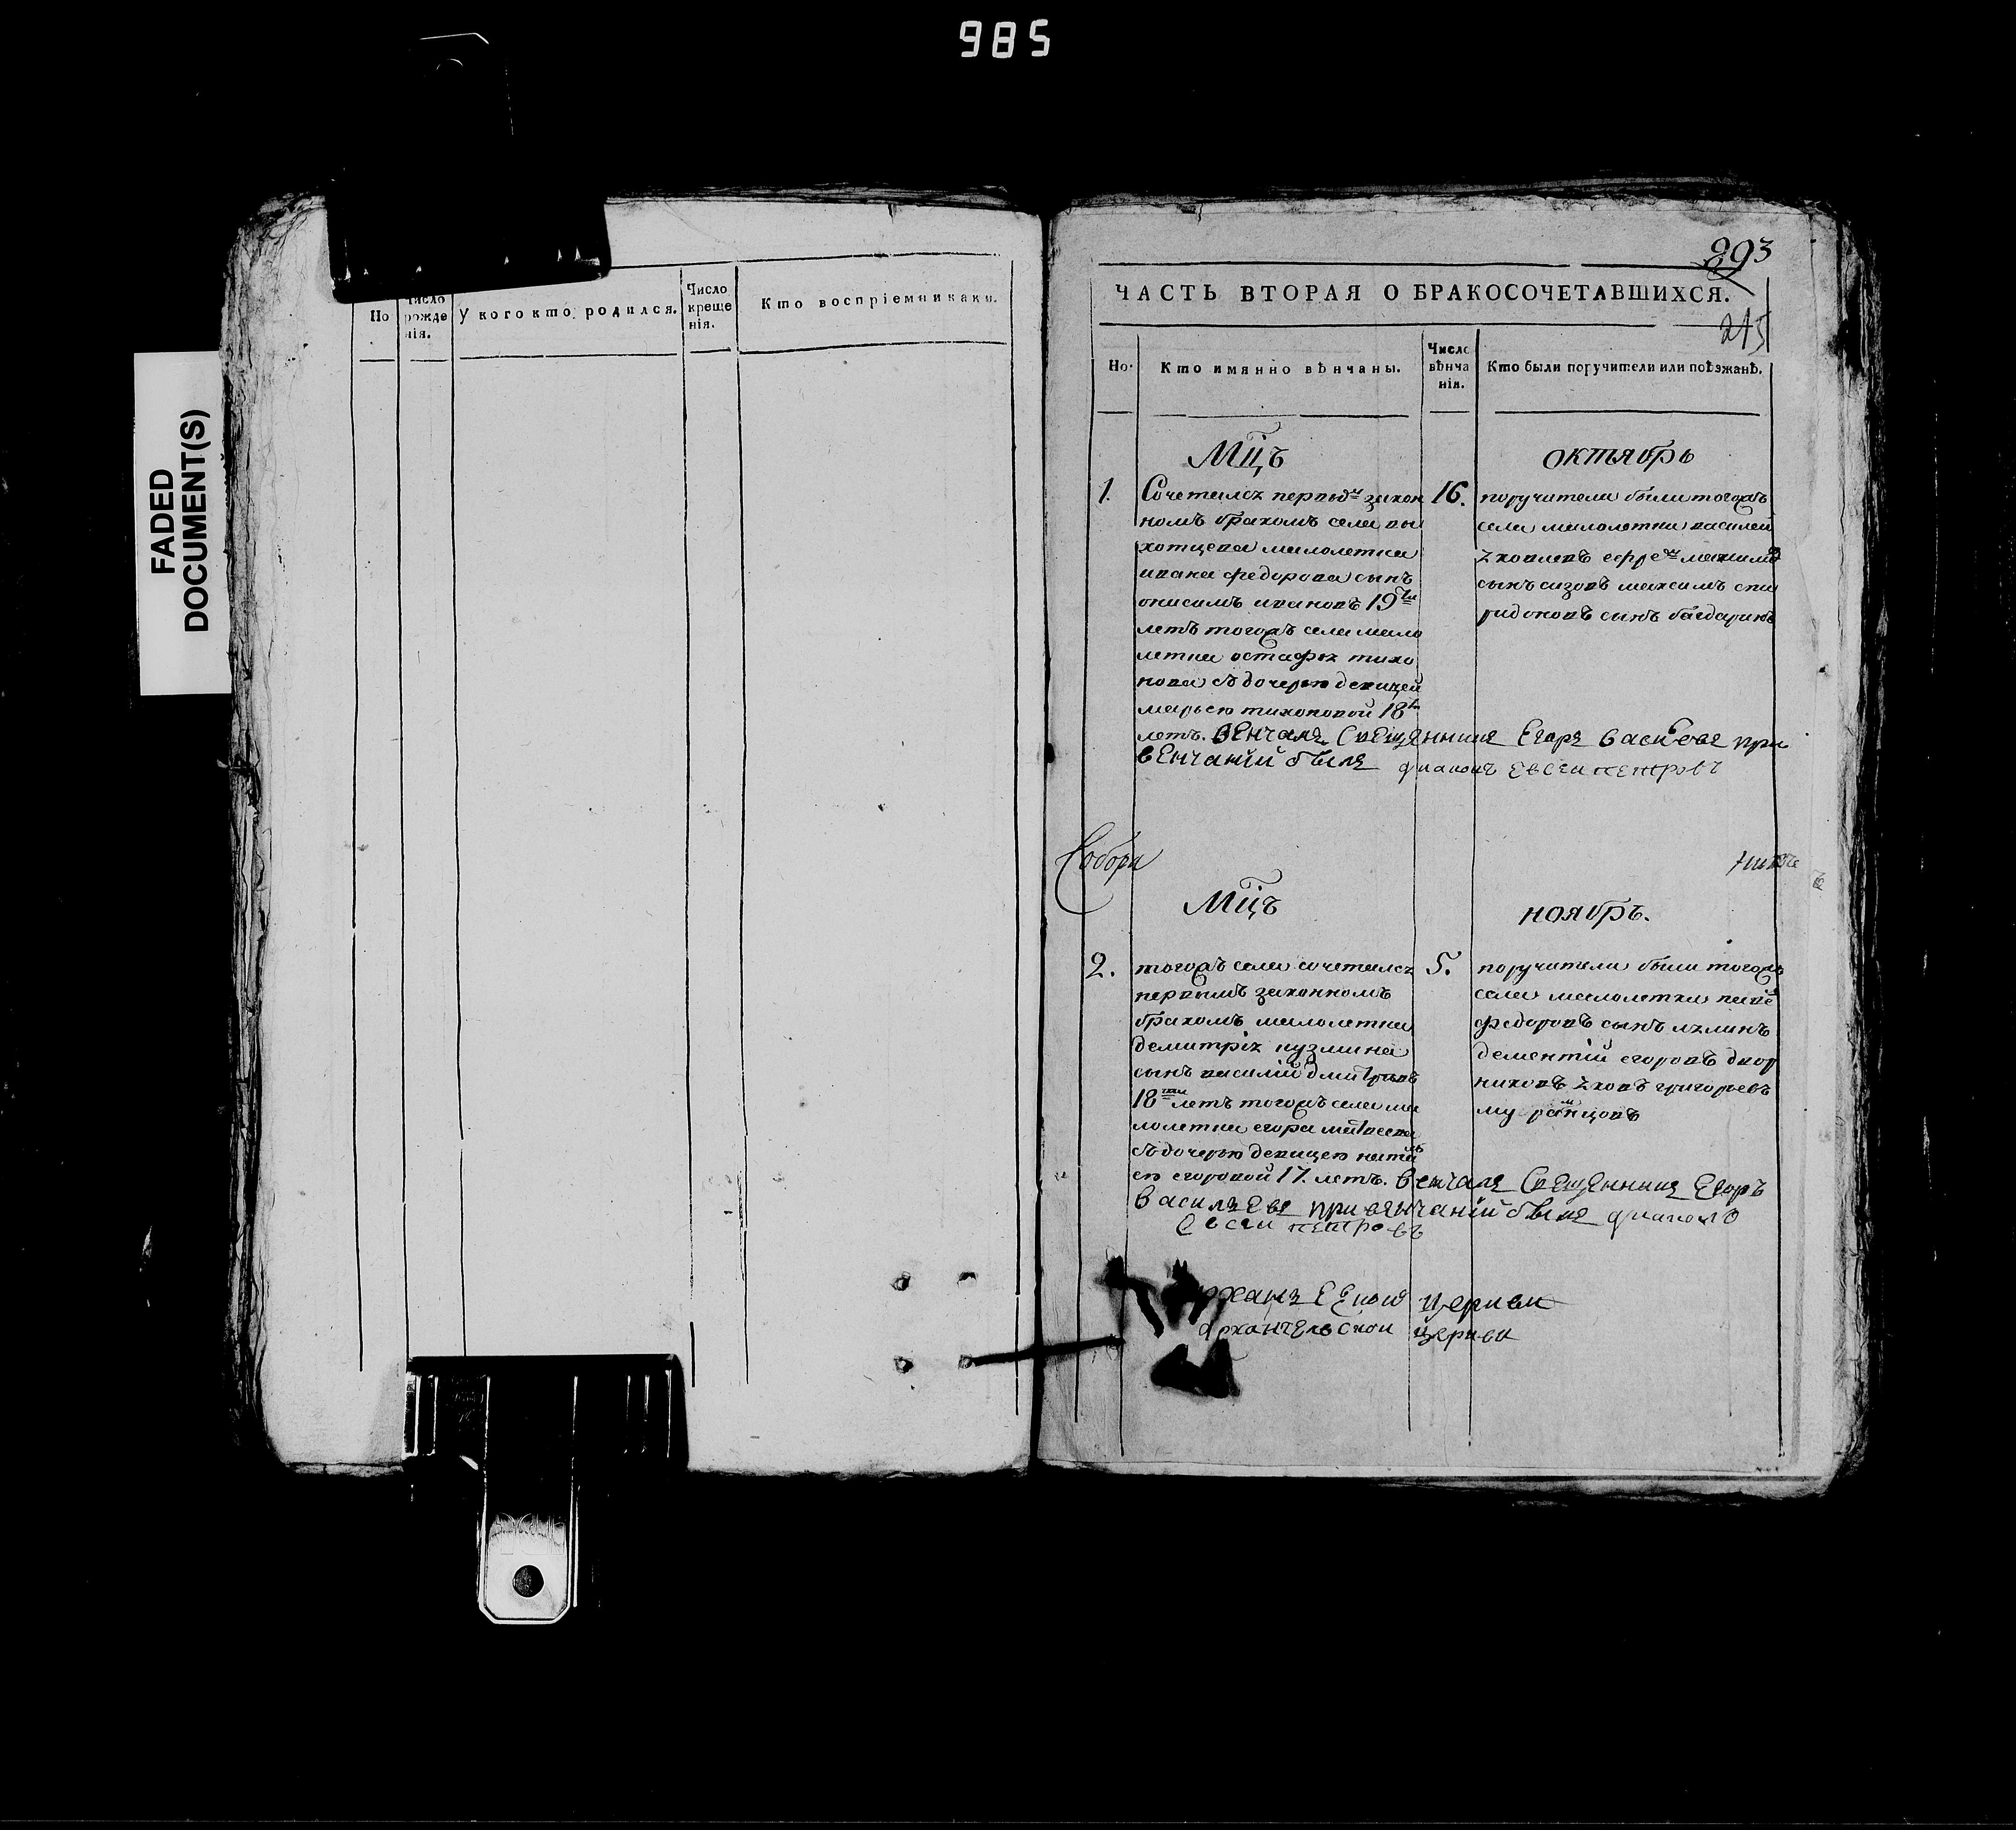 985
FADED
DOCUMENT(S)
Но
Число рожде нія.
У кого кто родился.
Число креще нія.
Кто воспріемниками.
293
ЧАСТЬ ВТОРАЯ О БРАКОСОЧЕТАВШИХСЯ.
215
Но.
Кто имянно вѣнчаны.
Число вѣнча нія.
Кто были поручители или поѣзжанѣ.
Мцъ
октябрь
1.
Сочетался первым закон
номъ бракомъ села вы
хотцева малолетка
ивана федорова сынъ
онисимъ ивановъ 19ти
летъ тогожъ села мало
летка остафья тихо
нова съ дочерью девицей
марьею тихоновой 18ти
летъ. венчалъ Священникъ Егоръ Васильевъ при
венчаніи былъ диаконъ Евсеи петровъ
16.
поручители были тогожъ
села малолетки василей
яковлевъ ефрем
сынъ сизовъ максимъ спи
ридоновъ сынъ
Собора
Мцъ
ноябрь.
2.
тогожъ села сочетался
первымъ законномъ
бракомъ малолетка
демитрія кузмина
сынъ василій дмитревъ
18ти летъ тогожъ села ма
лолетка егора матвеева
съ дочерью девицею наталь
ею егоровой 17. летъ. венчалъ Священникъ Егоръ
Васильевъ при венчаніи былъ диаконъ
Евсеи петровъ
5.
поручители были тогожъ
села малолетки
федоровъ сынъ
дементій егоровъ двор
никовъ яковъ григорьевъ
церкви
архангельскои церкви